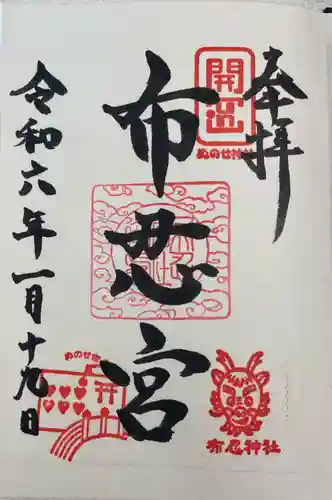 奉拝
開運
ぬのせ神社
布忍宮
布忍神社
令和六年一月十九日